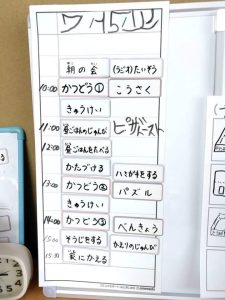 朝の会 (うごき)たいそう
10:00 かつどう① こうさく
きゅうけい
11:00 昼ごはんのじゅんび ピザトースト
12:00 昼ごはんをたべる
かたづける ハミガキをする
13:00 かつどう② パズル
きゅうけい
14:00 かつどう③ べんきょう
15:00 そうじをする かえりのじゅんび
15:30 家にかえる